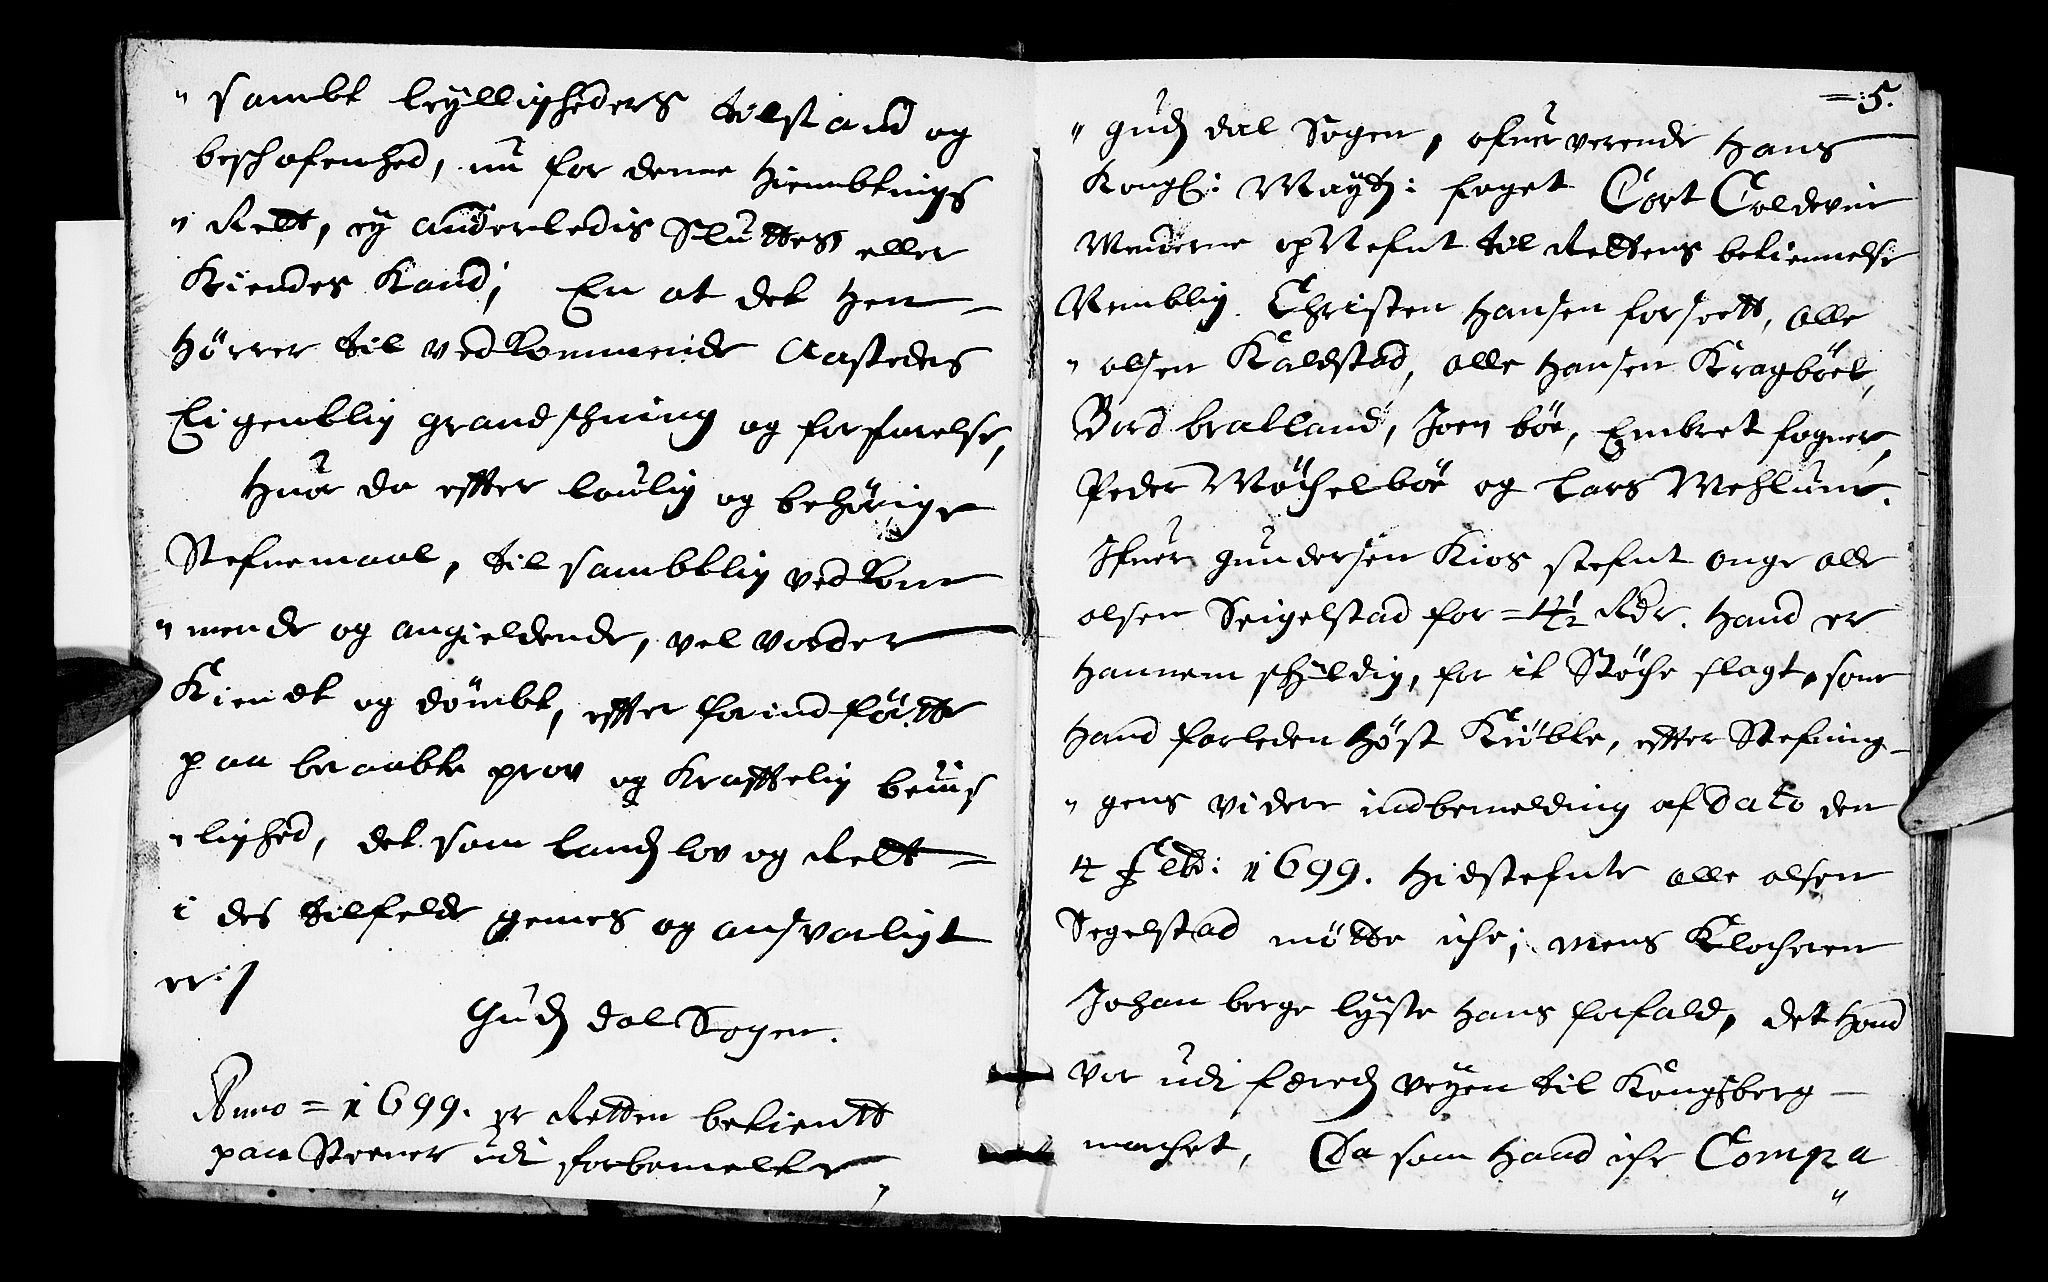 " sambt leylligheders tilstand og
beschafenhed, nu for denne Hiembtings
" Rett, ey anderledis Sluttes eller
Kiendes Kand; En at det Hen
Hörrer til vedkommende Aastedes
Eigentlig grandschning og forfarelse,
Huor da effter loulig og behörige
Stefnemaal, til sambtlig vedkom
" mende og angieldende, vel vorder
Kiendt og dömbt, effter forindförtte
paa beraabte prov og Krafftelig beuis
" lighed, det som Landslov og Rett
i des tilfelde gemes og ansvarligt
er:/
Guds dal Sogen.
Anno = 1699. er Retten betientt
paa Steener udi forbemelte
= 5.
" guds dal Sogen, ofuer verende Hans
Kongl: Mayts: foget Cort Coldevin
Menderne opNefnt til Rettens betiennelse
Nemblig. Christen Hansen forsett, olle
" olsen Kaldstad, olle Hansen Kragböel,
Bord bratland, Joen böe, Embret fogner,
Peder Möchelböe og Lars Mehlum.
Ifuer gundersen Kios stefnt unge olle
olsen Seigelstad for = 4½ Rdr. Hand er
Hannem schyldig, for it Stöche slagt, som
Hand forleden Höst Kiöbte, effter Stefning
" gens videre indbemelding af Dato den
4 Feb: 1699. Hidstefnte olle olsen
Segelstad mötte iche; mens Klocheren
Johan berge lyste Hans forfald, det Hand
var udi færds veyen til Kongsberg
marchet, Da som Hand iche Compa
"